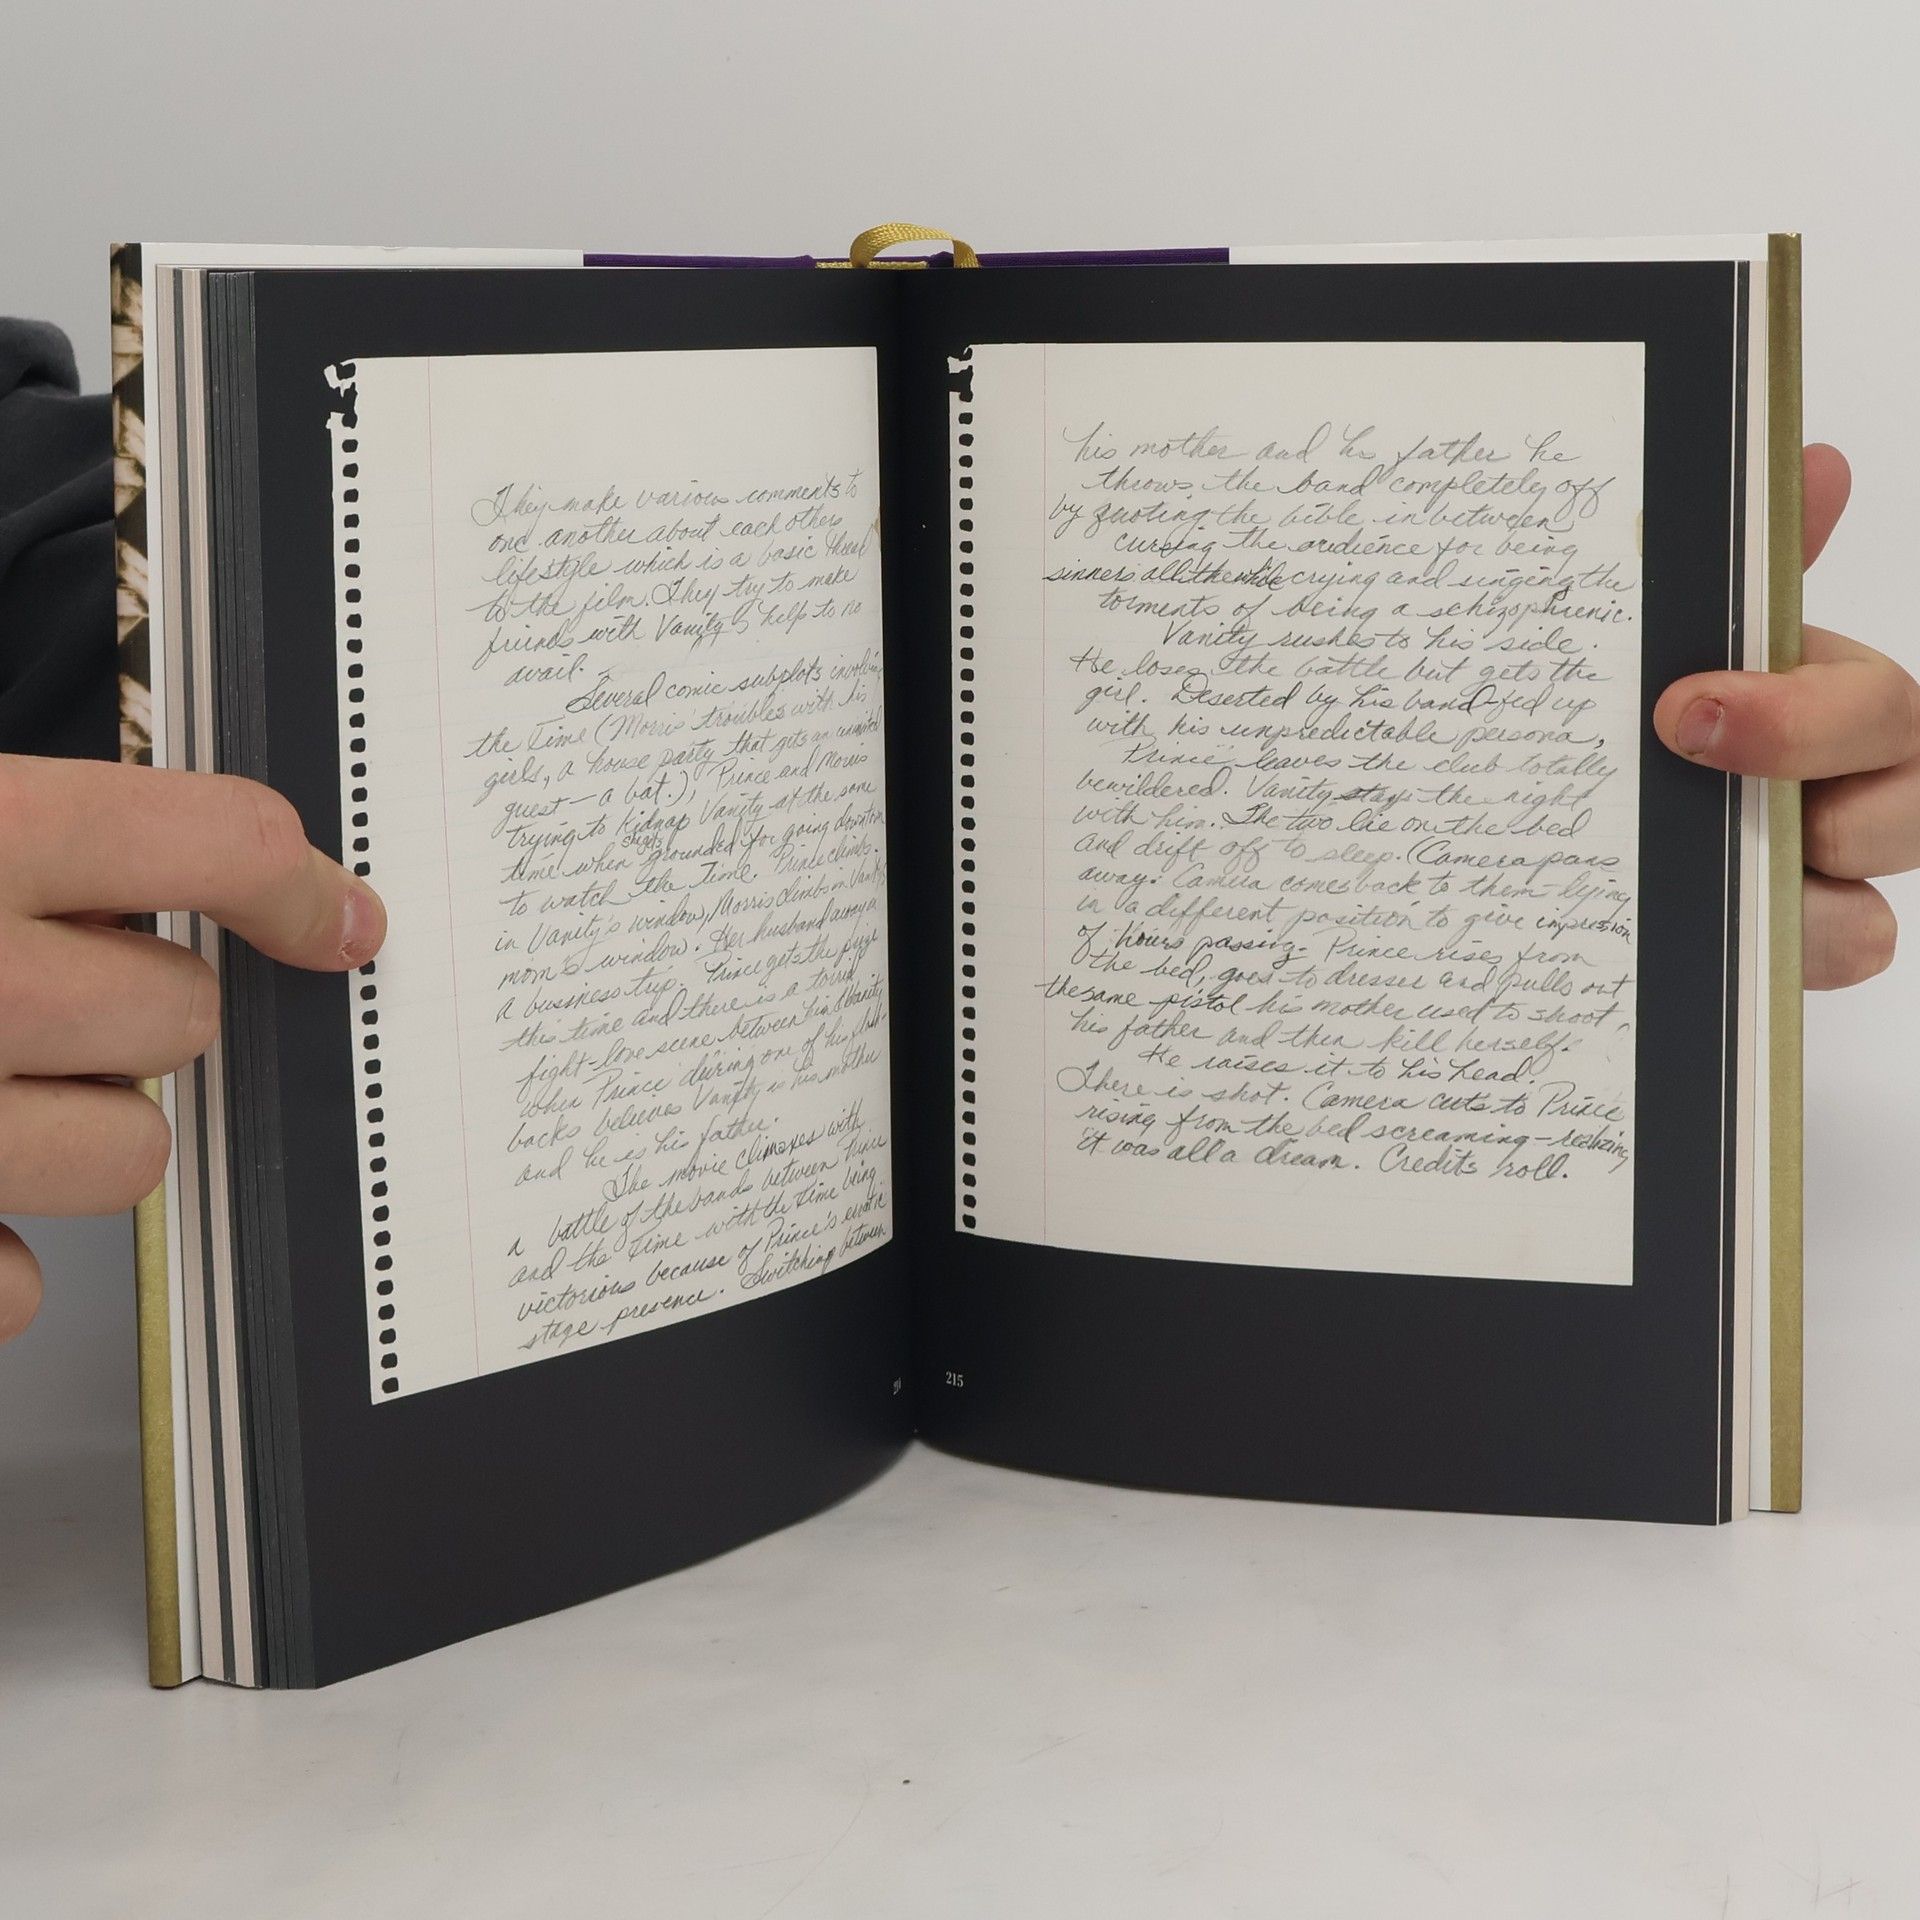 They make various comments to
one another about each others
lifestyle which is a basic thread
to the film. They try to make
friends with Vanity's help to no
avail.
Several comic subplots involving
the Time (Morris' troubles with his
girls, a house party that gets an uninvited
guest — a bat.), Prince and Morris
trying to kidnap Vanity at the same
time when she's grounded for going downtown
to watch the Time. Prince climbs
in Vanity's window, Morris climbs in Vanity's
mom's window. Her husband away on
a bussiness trip. Prince gets the prize
this time and there is a torrid
fight-love scene between him & Vanity
when Prince during one of his flash-
backs believes Vanity is his mother
and he is his father.
The movie climaxes with
a battle of the bands between Prince
and the Time with the Time being
victorious because of Prince's erratic
stage presence. Switching between
his mother and his father he
throws the band completely off
by quoting the bible in between
cursing the audience for being
sinners all the while crying and singing the
torments of being a schizophrenic.
Vanity rushes to his side.
He loses the battle but gets the
girl. Deserted by his band-fed up
with his unpredictable persona,
Prince leaves the club totally
bewildered. Vanity stays the night
with him. The two lie on the bed
and drift off to sleep. (Camera pans
away: Camera comes back to them-lying
in a different position to give impression
of hours passing- Prince rises from
the bed, goes to dresser and pulls out
the same pistol his mother used to shoot
his father and then kill herself.
He raises it to his head.
There is shot. Camera cuts to Prince
rising from the bed screaming-realizing
it was all a dream. Credits roll.
215